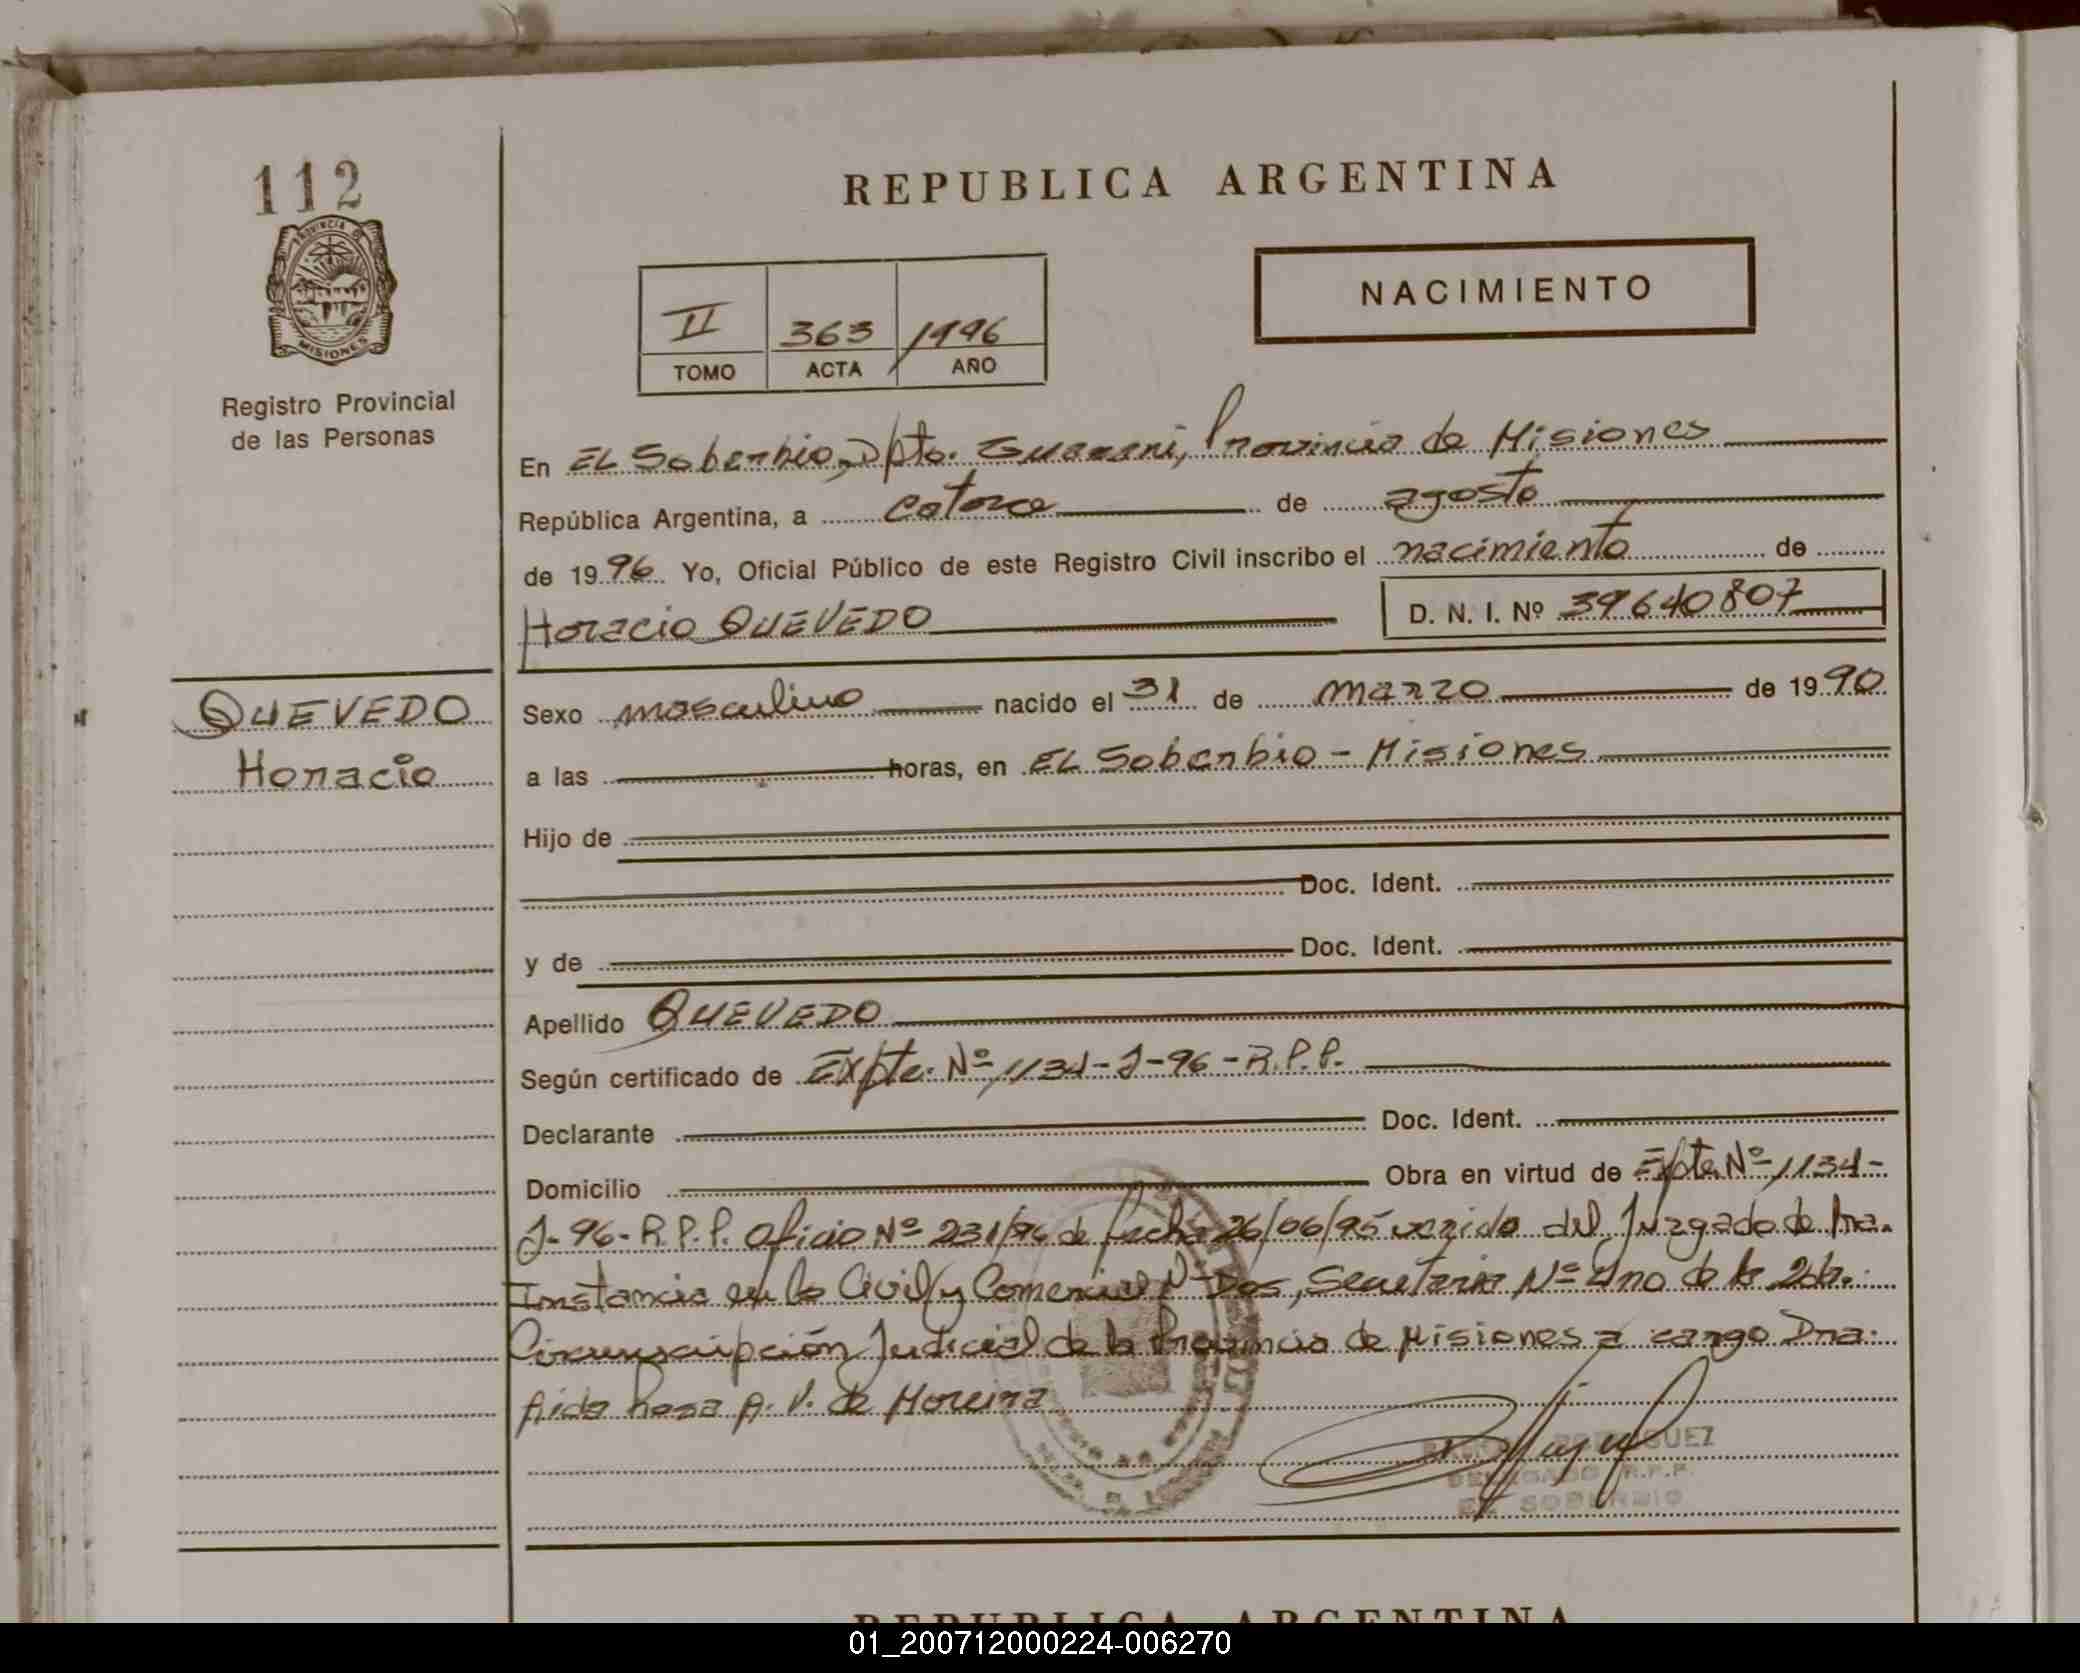 112
PROVINCIA DE
MISIONES
Registro Provincial
de las Personas
REPUBLICA ARGENTINA
NACIMIENTO
II 363 1996
TOMO ACTA AÑO
En EL Soberbio, Dpto. Guarani, Provincia de Misiones
República Argentina, a catorce de agosto
de 1996 Yo, Oficial Público de este Registro Civil inscribo el nacimiento de
Horacio QUEVEDO D. N. I. Nº 39640807
QUEVEDO
Horacio
Sexo masculino nacido el 31 de marzo de 1990
a las horas, en EL Soberbio - Misiones
Hijo de
Doc. Ident.
y de Doc. Ident.
Apellido QUEVEDO
Según certificado de Expte. Nº 1134-J-96-R.P.P.
Declarante Doc. Ident.
Domicilio Obra en virtud de Expte Nº 1134-
J-96-R.P.P. Oficio Nº 231/96 de fecha 26/06/95 venido del Juzgado de Pra.
Instancia en lo Civil y Comercial Nº Dos, Secretaria Nº Uno de la 2da.
Circunscripción Judicial de la Provincia de Misiones a cargo Dra.
Aida Rosa A. V. de Moreira
DELEGADO R.P.P.
EL SOBERBIO
REPUBLICA ARGENTINA
01_200712000224-006270